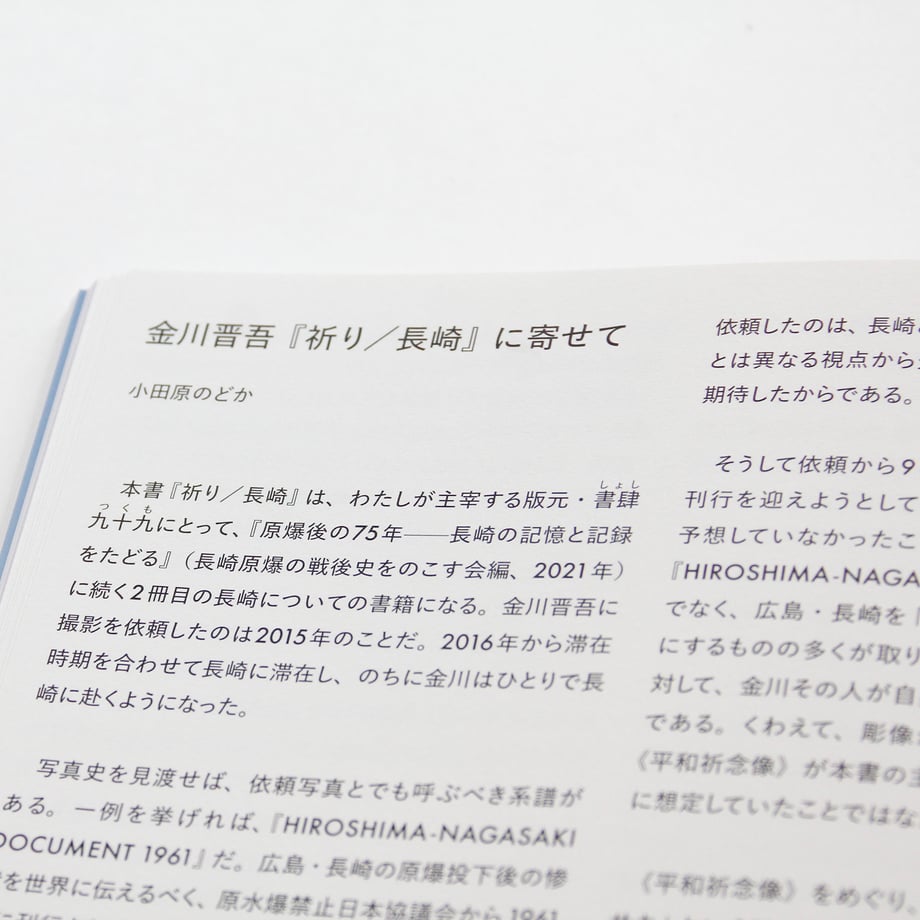 金川晋吾『祈り／長崎』に寄せて
小田原のどか
本書『祈り／長崎』は、わたしが主宰する版元・書肆
しょし
九十九にとって、『原爆後の75年――長崎の記憶と記録
つくも
をたどる』（長崎原爆の戦後史をのこす会編、2021年）
に続く2冊目の長崎についての書籍になる。金川晋吾に
撮影を依頼したのは2015年のことだ。2016年から滞在
時期を合わせて長崎に滞在し、のちに金川はひとりで長
崎に赴くようになった。
写真史を見渡せば、依頼写真とでも呼ぶべき系譜が
ある。一例を挙げれば、『HIROSHIMA-NAGASAKI
DOCUMENT 1961』だ。広島・長崎の原爆投下後の惨
を世界に伝えるべく、原水爆禁止日本協議会から1961
依頼したのは、長崎
とは異なる視点から
期待したからである。
そうして依頼から9
刊行を迎えようとして
予想していなかったこ
『HIROSHIMA-NAGA
でなく、広島・長崎を
にするものの多くが取り
対して、金川その人が自
である。くわえて、彫像
《平和祈念像》が本書の主
に想定していたことではな
《平和祈念像》をめぐり、